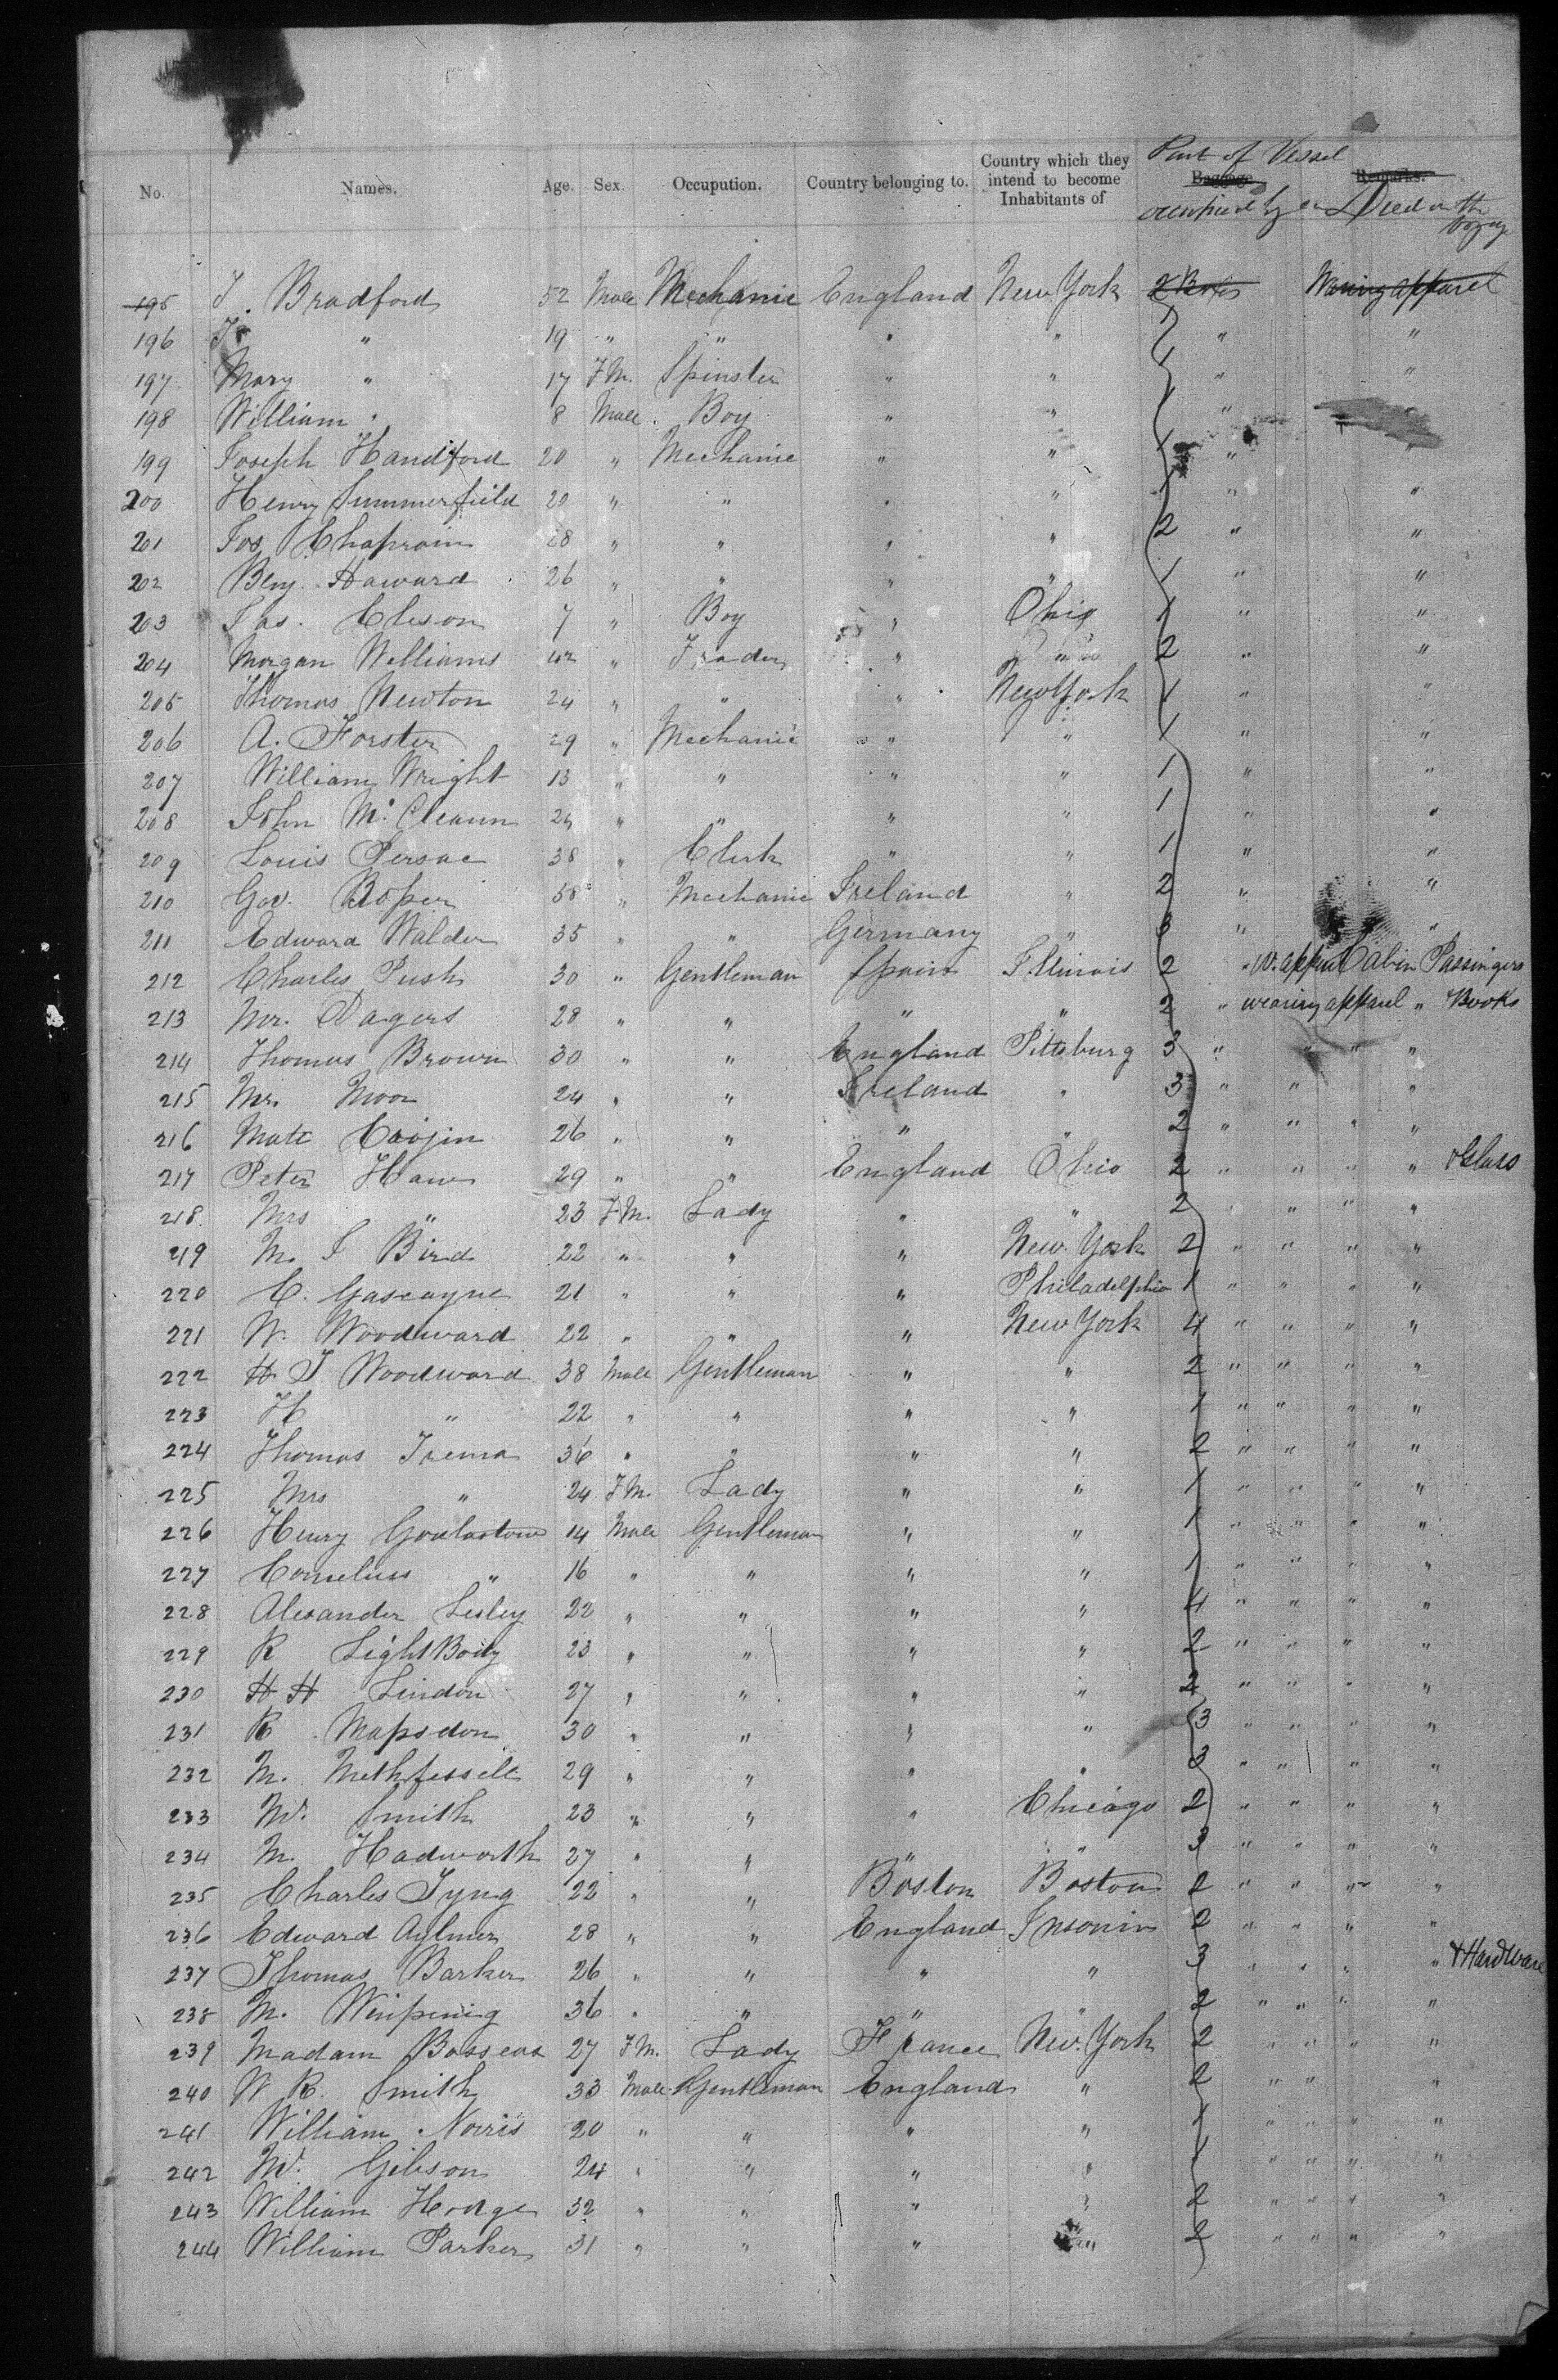 No. Names. Age. Sex. Occupution. Country belonging to. Country which they intend to become Inhabitants of Baggage Remarks.
Part of Vessel
occupied by Died on the voyage
195 J. Bradford 52 Male Mechanic England New York 2 Boxes Waring apparel
196 J. " 19 " " " " 1 " "
197 Mary " 17 F.M. Spinster " " 1 " "
198 William " 8 Male Boy " " 1 "
199 Joseph Handford 20 " Mechanic " " 1 " "
200 Henry Summerfield 20 " " " " 1 " "
201 Jos Chapman 28 " " " " 2 " "
202 Benj. Haward 26 " " " " 1 " "
203 Jas. Cleson 7 " Boy " Ohio 1 " "
204 Morgan Williams 42 " Trader " " 2 " "
205 Thomas Newton 24 " " " New York 1 " "
206 A. Forster 29 " Mechanic " " 1 " "
207 William Wright 13 " " " " 1 " "
208 John Mc. Cleaun " " " " 1 " "
209 Louis Persac 38 " Clerk " " 1 " "
210 Geo. Roper 58 " Mechanic Ireland " 2 " "
211 Edward Walder 35 " " Germany " 3 " "
212 Charles Push 30 " Gentleman Spain Illinois 2 " Cabin Passingers
213 Mr. Dagers 28 " " " " 2 " wearing apparel " Books
214 Thomas Brown 30 " " England Pittsburg 3 " " " "
215 Mr. Moor 24 " " Ireland " 3 " " "
216 Matt 26 " " " " 2 " " " "
217 Peter Haw 29 " " England Ohio 2 " " " " & Glass
218 Mrs " 23 F.M. Lady " " 2 " " " "
219 M. J Bird 22 " " " New York 2 " " " "
220 C. Gascoyne 21 " " " Philadelphia 1 " " " "
221 W. Woodward 22 " " " New York 4 " " " "
222 H. J Woodward 38 Male Gentleman " " 2 " " " "
223 H " 22 " " " " 1 " " " "
224 Thomas Trema 36 " " " " 2 " " " "
225 Mrs " 24 F.M. Lady " " 1 " " " "
226 Henry Goulastone 14 Male Gentleman " " 1 " " " "
227 Cornelius " 16 " " " " 1 " " "
228 Alexander Lesley 22 " " " " 4 " " " "
229 R LightBody 23 " " " " 2 " " " "
230 H H Lindon 27 " " " " 2 " " " "
231 R. Mapsdon 30 " " " " 3 " " " "
232 M. Methfessell 29 " " " " 3 " " " "
233 M. Smith 23 " " " Chicago 2 " " " "
234 M. Hadworth 27 " " " " 3 " " " "
235 Charles Tyng 22 " " Boston Boston 2 " " " "
236 Edward Aylmer 28 " " England 2 " " " "
237 Thomas Barker 26 " " " " 3 " " " " & Hardware
238 M. Winpenig 36 " " " " 2 " " " "
239 Madam 27 F.M. Lady France New. York 2 " " " "
240 W R. Smith 33 Male Gentleman England " 2 " " "
241 William Norris 20 " " " " 1 " " " "
242 M. Gibson 24 " " " " 1 " " " "
243 William Hodge 32 " " " " 2 " " " "
244 William Parker 31 " " " " 2 " " " "